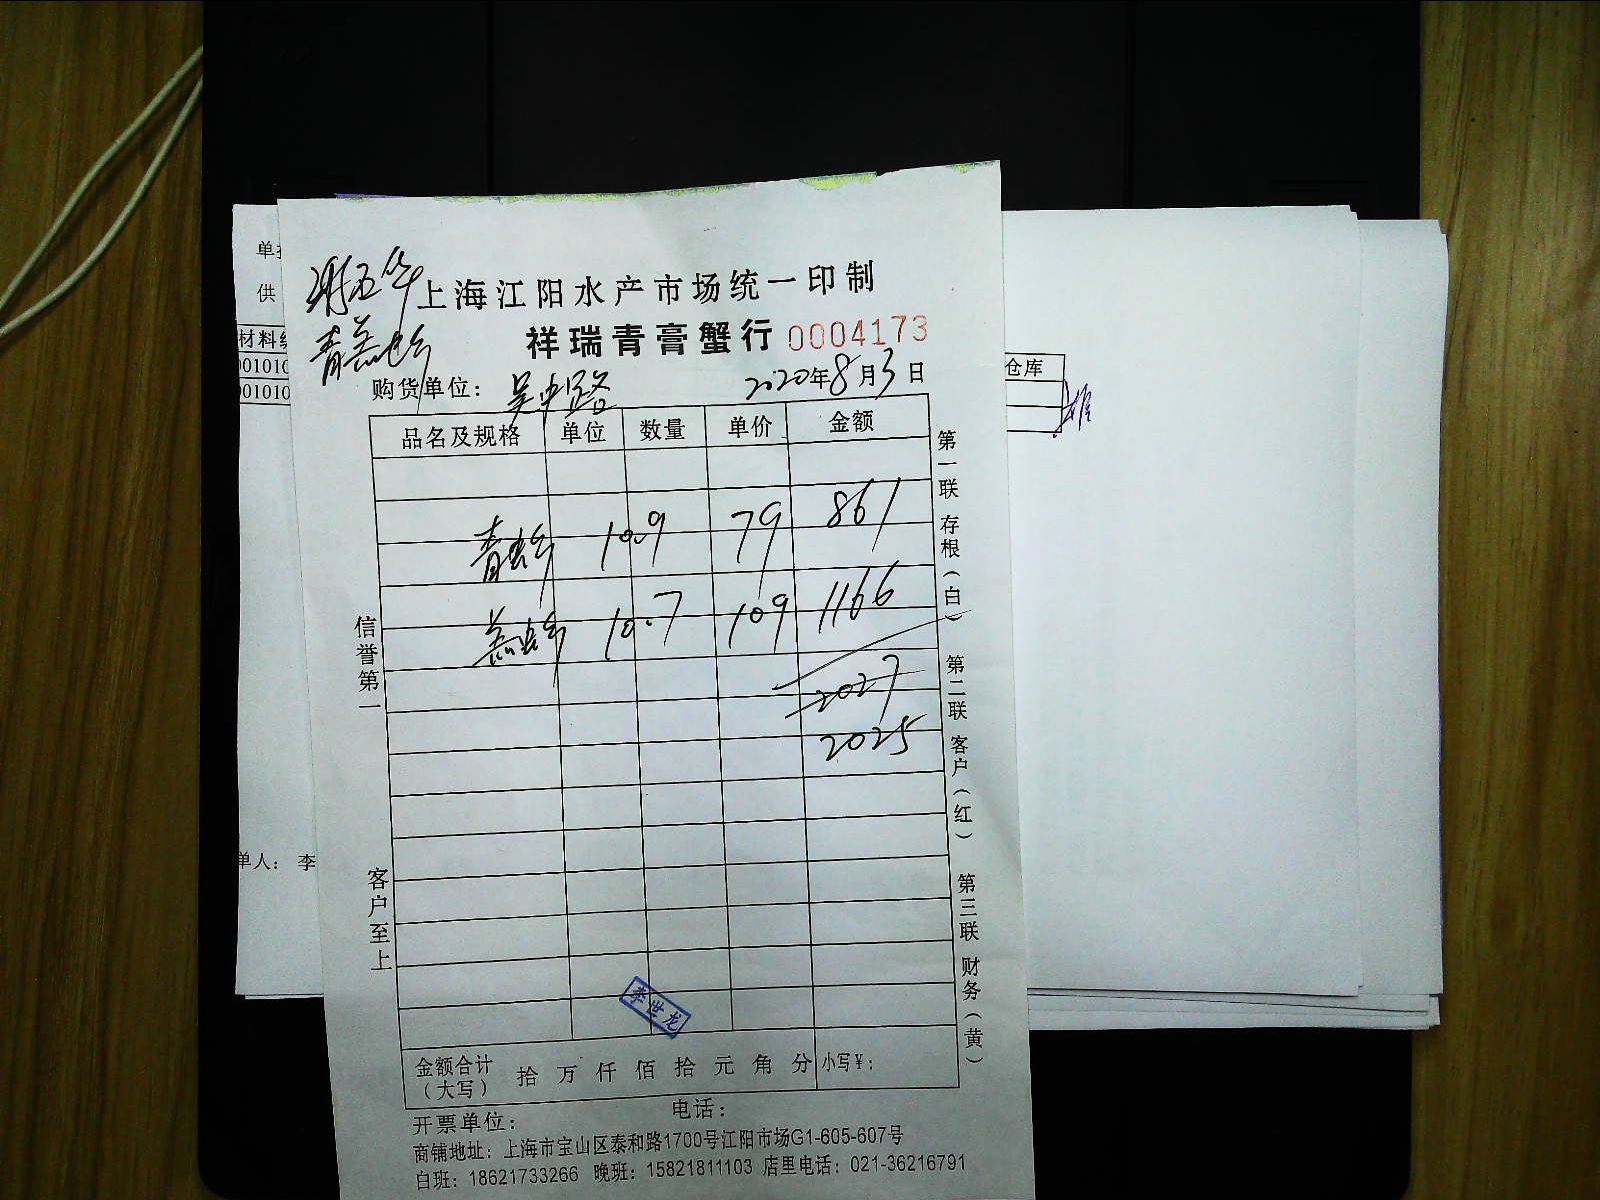 上海江阳水产市场统一印制
祥瑞青膏蟹行 0004173
购货单位： 吴中路 2020年8月3日
品名及规格 单位 数量 单价 金额
10.9 79 861
10.7 109 1166
2027
2025
金额合计（大写） 拾 万 仟 佰 拾 元 角 分 小写¥：
开票单位： 电话：
商铺地址：上海市宝山区泰和路1700号江阳市场G1-605-607号
白班：18621733266 晚班：15821811103 店里电话：021-36216791
信誉第一
客户至上
第一联 存根（白）
第二联 客户（红）
第三联 财务（黄）
李世龙
供
材料
001010
001010
单人： 李
仓库